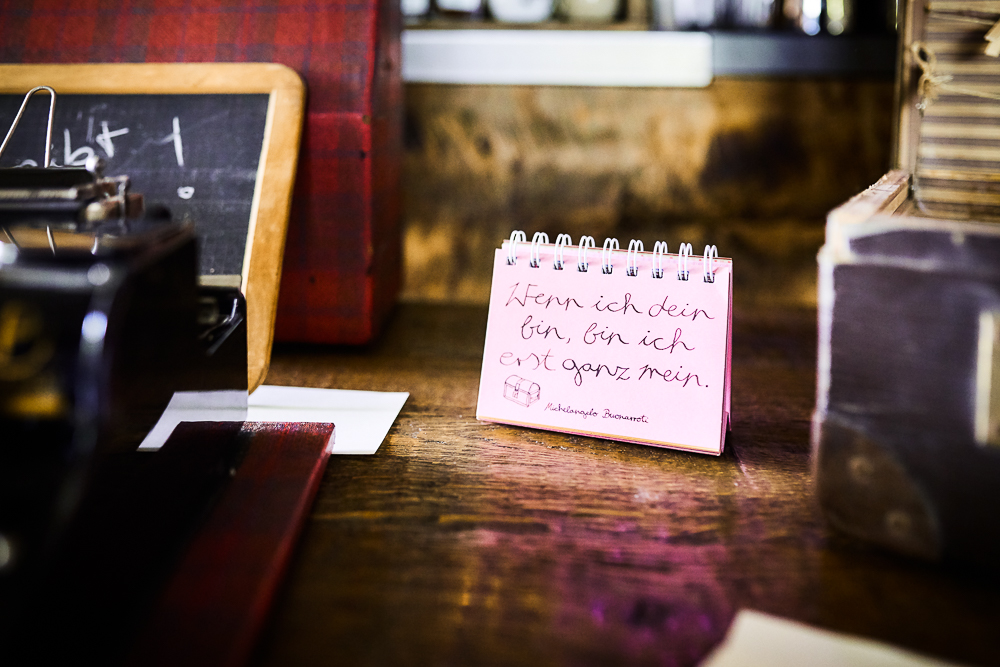 Wenn ich dein
bin, bin ich
erst ganz mein.
Michelangelo Buonarroti